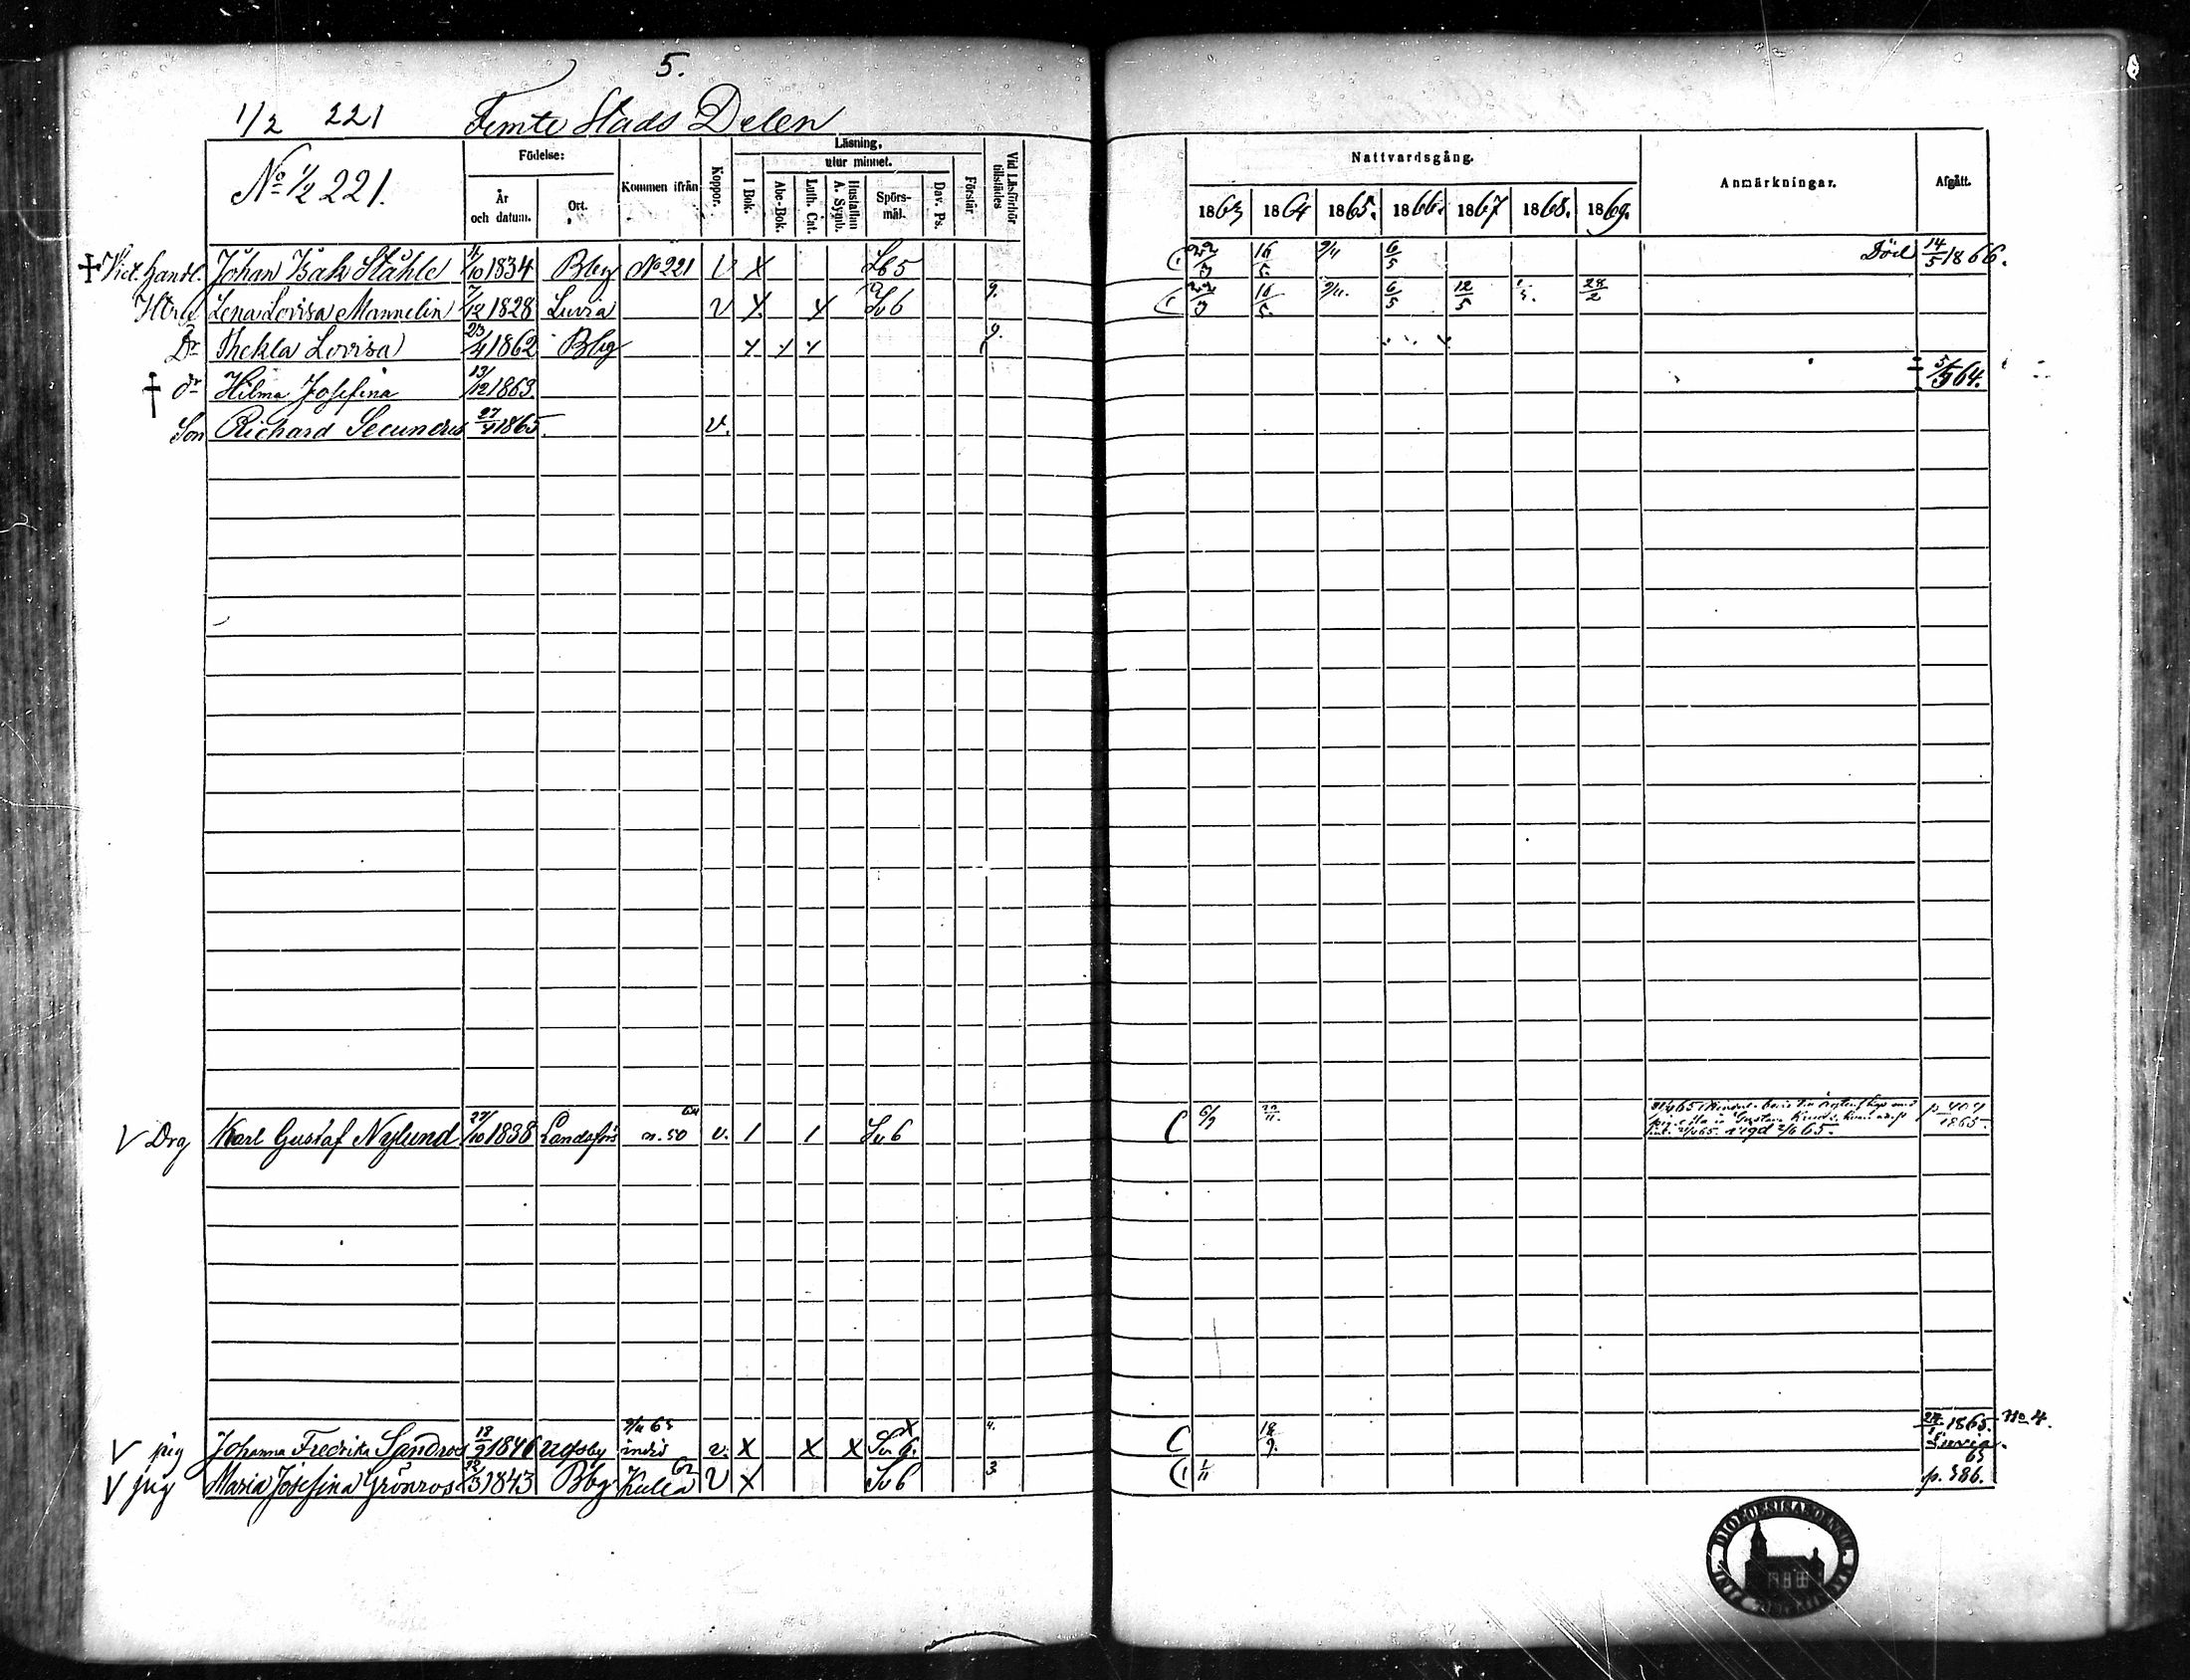 5.
1/2 221 Femte Stads Delen
No 1/2 221.
Födelse:
År och datum.
Ort.
Kommen ifrån
Koppor.
Läsning,
I Bok.
utur minnet.
Abc-Bok.
Luth. Cat.
Hustaflan A. Symb.
Spörs-mål.
Dav. Ps.
Förstår.
Vid Läsförhör tillstädes
Nattvardsgång.
1863 1864 1865. 1866. 1867 1868. 1869.
Anmärkningar.
Afgått.
† Vict. handl. Johan Isak Ståhle 11/10 1834 Bbg No 221 V X Sb 5 22/3 16/5 9/4 6/5 Död 14/5 1866.
Lena Lovisa Mannelin 7/12 1828 Luvia V X X Sv 6 9. 22/3 16/5 9/4. 6/5 12/5 28/2
Dr Thekla Lovisa 23/4 1862 Bbg 9.
† dr Hilma Josefina 13/12 1863. 5/5 64.
Son Richard Secundus 27/4 1865. v.
V Drg Karl Gustaf Nylund 27/10 1838 n. 50 v. 1 1 Sv 6 C 6/9 vigd 65. 1865.
V pig Johanna Fredrika Sandros 18/9 1846 Ugsby v. X X X Sv 6. 4. C 18/9. 1865. No 4. Luvia.
V pig Maria Josefina Grönros 1843 Bbg Kulla 62 V X Sv 6 3 1/11 65 p. 386.